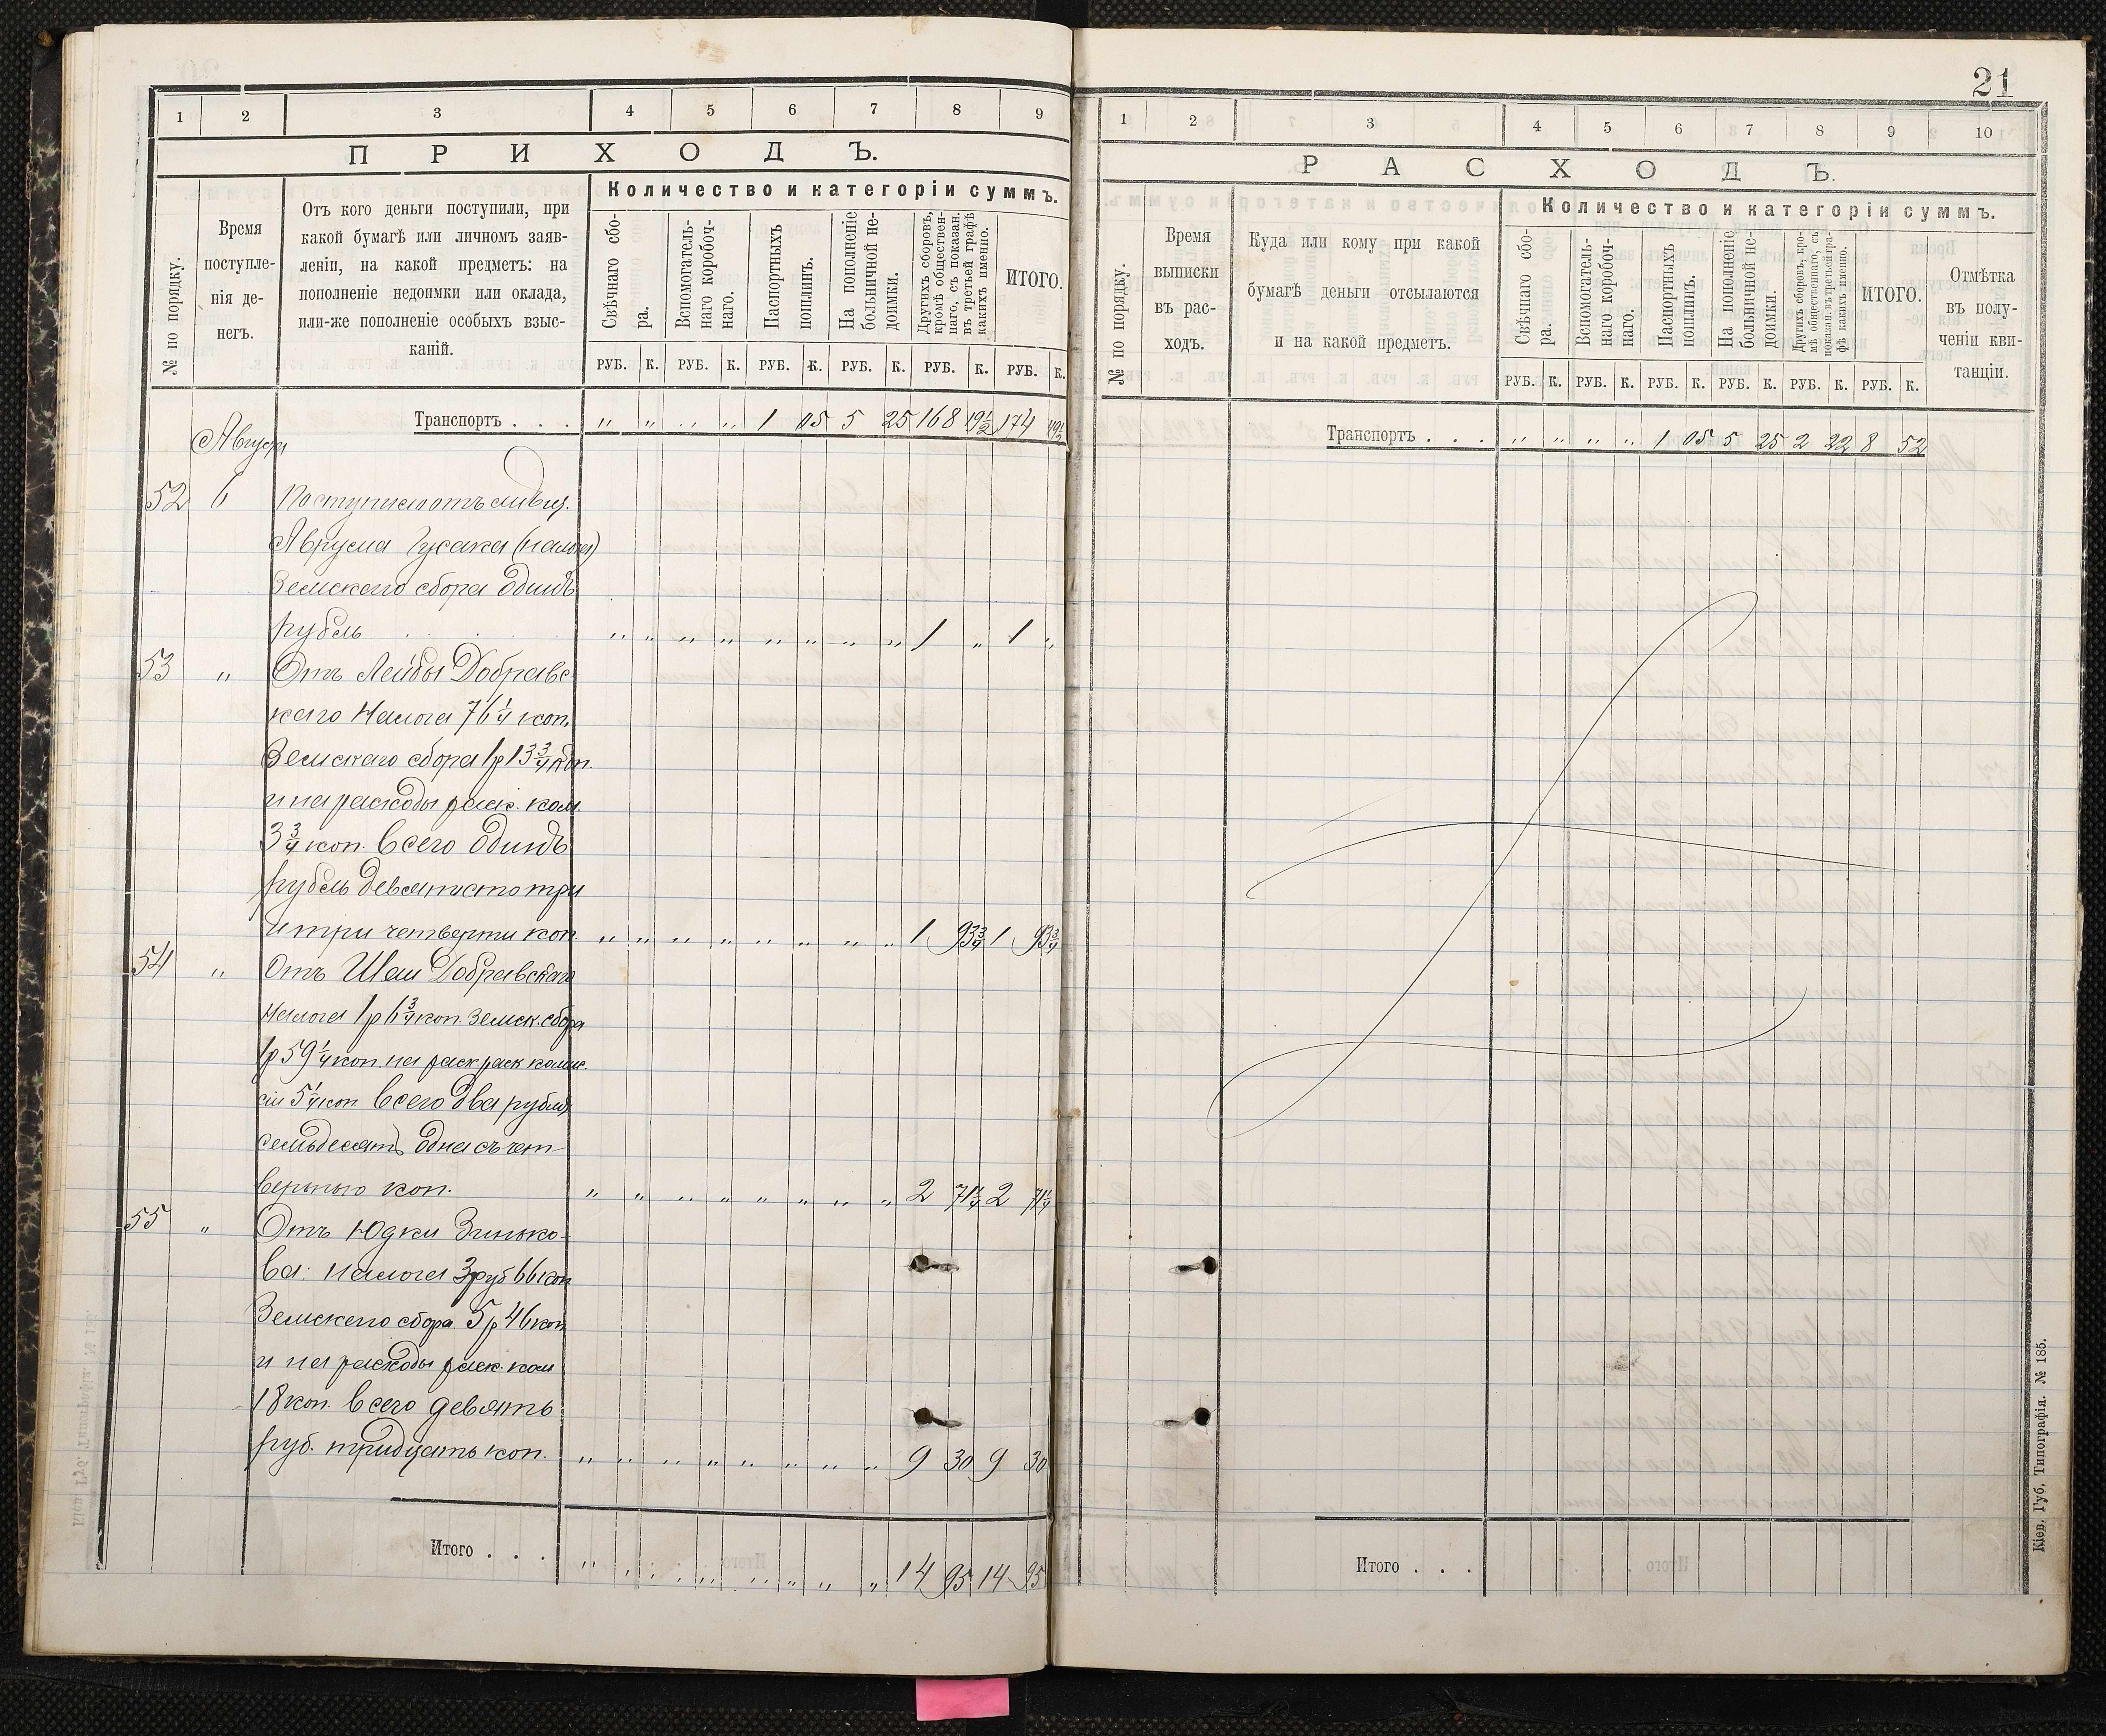 21
1 2 3 4 5 6 7 8 9
ПРИХОДЪ.
№ по порядку.
Время
поступле-
нія де-
негъ.
Отъ кого деньги поступили, при
какой бумагѣ или личномъ заяв-
леніи, на какой предметъ: на
пополненіе недоимки или оклада,
или-же пополненіе особыхъ взыс-
каній.
Количество и категоріи суммъ.
Свѣчнаго сбо-
ра.
Вспомогатель-
наго коробоч-
наго.
Паспортныхъ
пошлинъ.
На пополненіе
больничной не-
доимки.
Другихъ сборовъ,
кромѣ обществен-
наго, съ показан.
въ третьей графѣ
какихъ именно.
ИТОГО.
РУБ. К. РУБ. К. РУБ. К. РУБ. К. РУБ. К. РУБ. К.
Транспортъ . . . „ „ „ „ 1 05 5 25 168 19½ 174 49½
Августа
52 6 Поступило отъ
Аврума Гусака (налога)
Земскаго сбора Одинъ
рубль „ „ „ „ „ „ „ „ 1 „ 1 „
53 „ Отъ Лейбы Добравс-
каго Налога 76¼ коп.
Земскаго сбора 1р 13¾ коп.
и на расходы раск. ком.
3¾ коп всего Одинъ
рубль девяносто три
и три четверти коп. „ „ „ „ „ „ „ „ 1 93¾ 1 93¾
54 „ Отъ Шаи Добравскаго
Налога 1р 6¾ коп. Земск. сбора
1р 59¼ коп. на раск раск комис
сіи 5¼ коп всего два рубля
семьдесятъ одна съ чет-
вертью коп. „ „ „ „ „ „ „ „ 2 71¼ 2 71¼
55 „ Отъ Юдки Зинько-
ва: налога 3 руб 66 коп
Земскаго сбора 5р 46 коп
и на расходы раск. ком
18 коп. всего девять
руб. тридцать коп. „ „ „ „ „ „ „ „ 9 30 9 30
Итого . . . „ „ „ „ „ „ „ „ 14 95 14 95
1 2 3 4 5 6 7 8 9 10
РАСХОДЪ.
№ по порядку.
Время
выписки
въ рас-
ходъ.
Куда или кому при какой
бумагѣ деньги отсылаются
и на какой предметъ.
Количество и категоріи суммъ.
Свѣчнаго сбо-
ра.
Вспомогатель-
наго коробоч-
наго.
Паспортныхъ
пошлинъ.
На пополненіе
больничной не-
доимки.
Другихъ сборовъ, кро-
мѣ общественнаго, съ
показан. въ третьей гра-
фѣ какихъ именно.
ИТОГО.
Отмѣтка
въ полу-
ченіи кви-
танціи.
РУБ. К. РУБ. К. РУБ. К. РУБ. К. РУБ. К. РУБ. К.
Транспортъ . . . „ „ „ „ 1 05 5 25 2 22 8 52
Итого . . .
Кіев. Губ. Типографія. № 185.